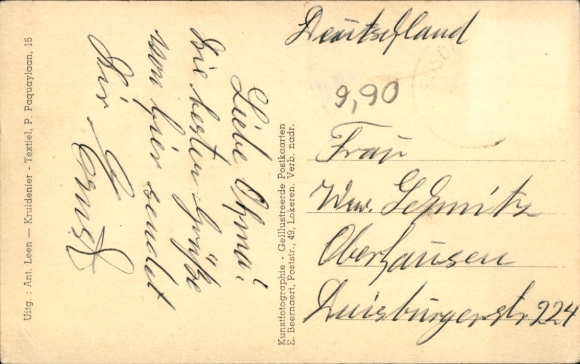 Uitg. : Ant. Leen — Kruidenier - Textiel, P. Paquaylaan, 16
Liebe Oma!
Die besten Grüße
von hier sendet
Dir
Ernst
Kunstfotographie - Geïllustreerde Postkaarten
E. Beernaert, Poststr., 49, Lokeren. Verb. nadr.
Deutschland
9,90
Frau
Ww. Schmitz
Oberhausen
Duisburgerstr 224